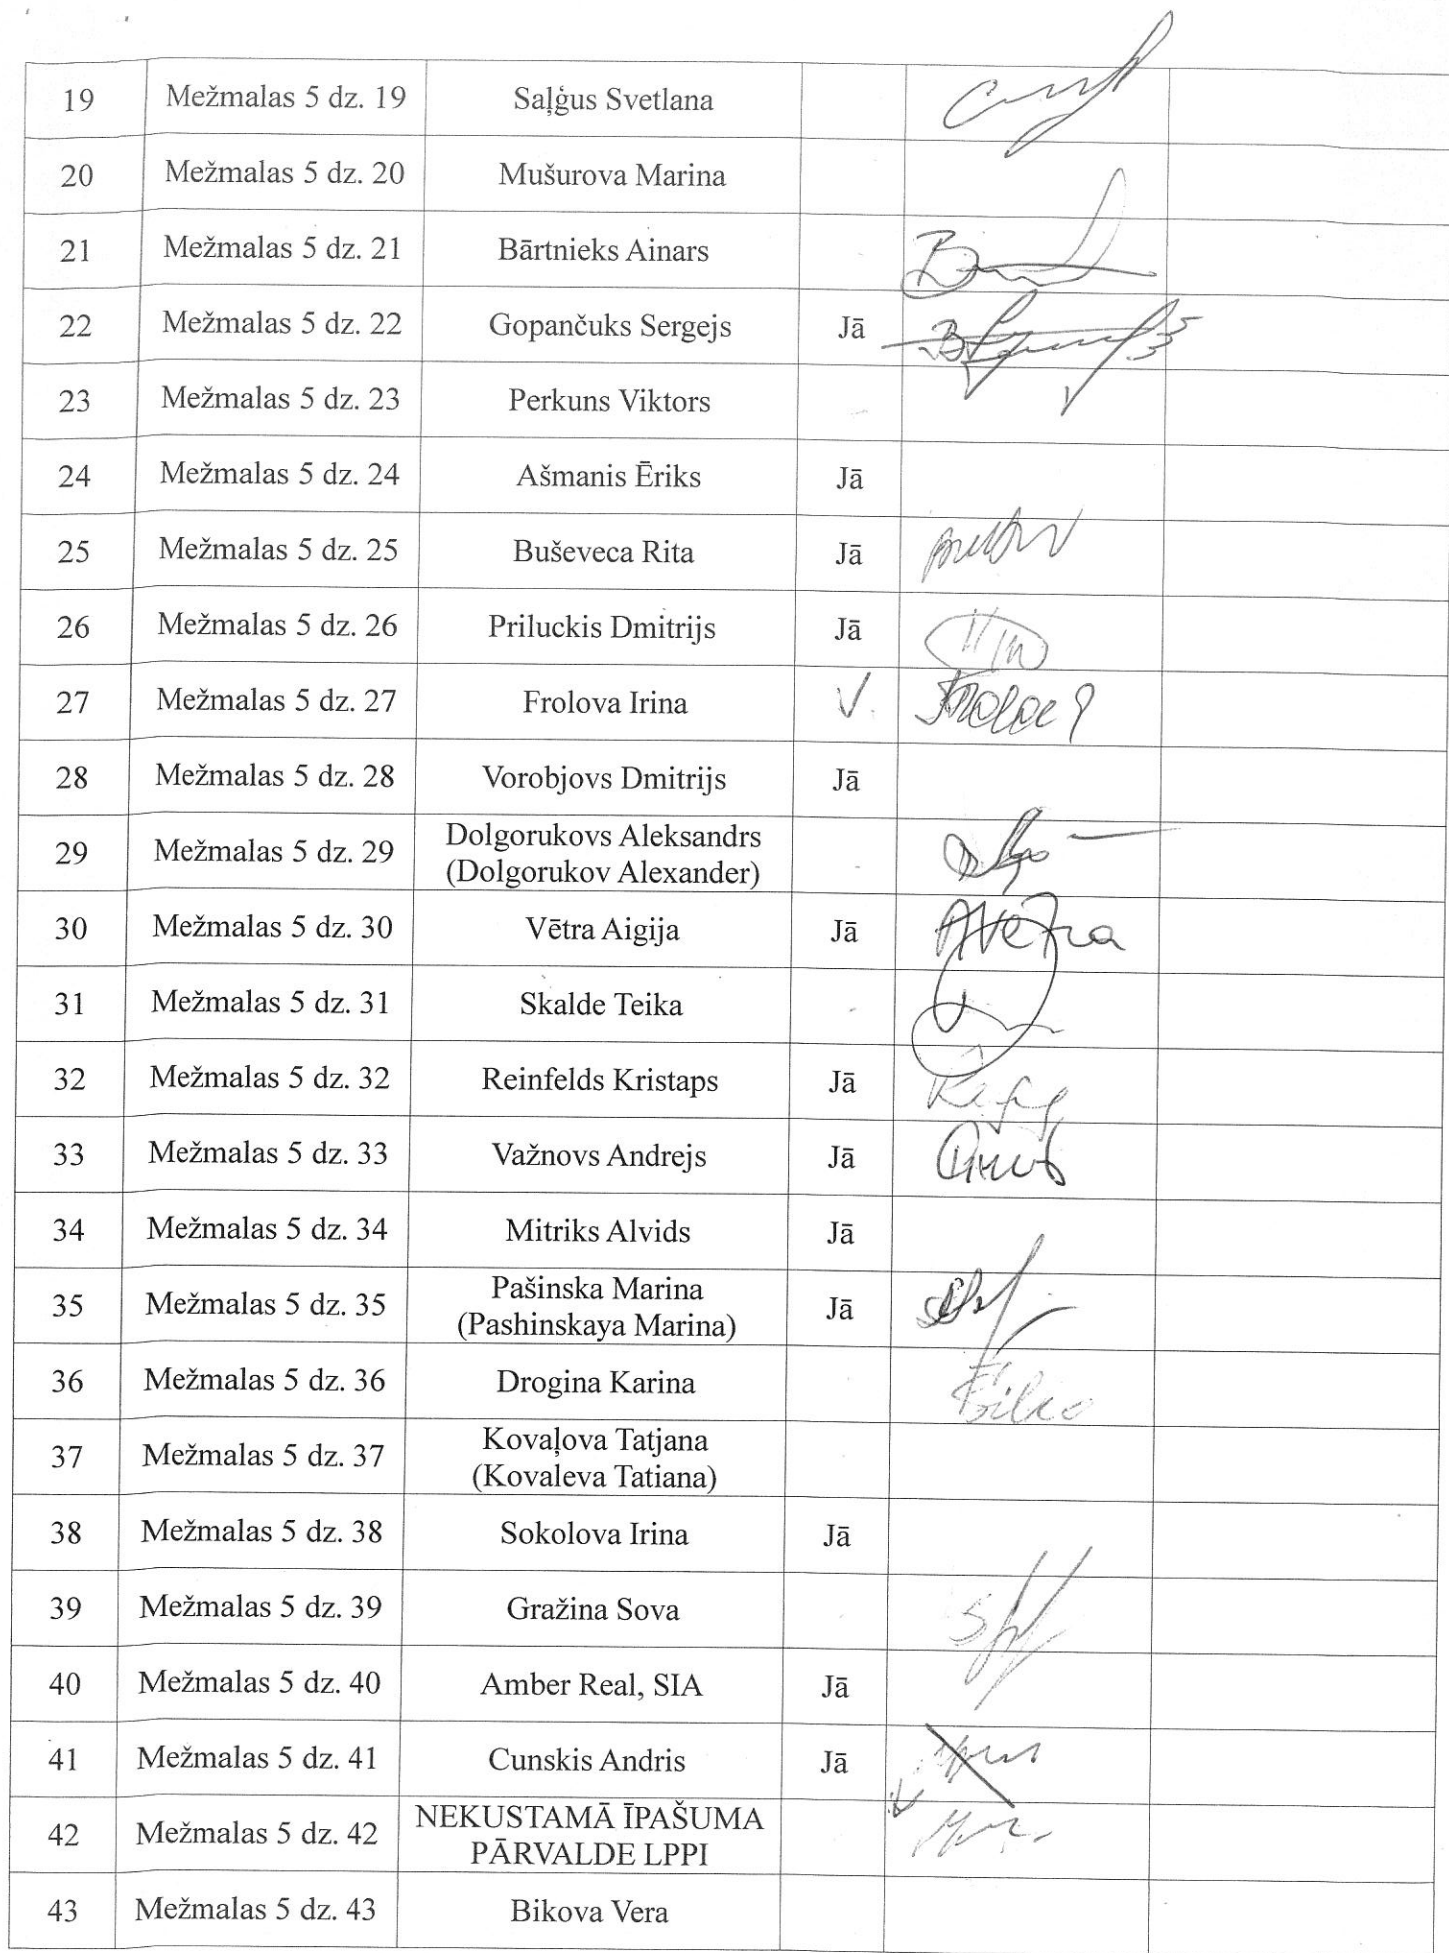 19 Mežmalas 5 dz. 19 Saļģus Svetlana
20 Mežmalas 5 dz. 20 Mušurova Marina
21 Mežmalas 5 dz. 21 Bārtnieks Ainars
22 Mežmalas 5 dz. 22 Gopančuks Sergejs Jā
23 Mežmalas 5 dz. 23 Perkuns Viktors
24 Mežmalas 5 dz. 24 Ašmanis Ēriks Jā
25 Mežmalas 5 dz. 25 Buševeca Rita Jā
26 Mežmalas 5 dz. 26 Priluckis Dmitrijs Jā
27 Mežmalas 5 dz. 27 Frolova Irina
28 Mežmalas 5 dz. 28 Vorobjovs Dmitrijs Jā
29 Mežmalas 5 dz. 29 Dolgorukovs Aleksandrs
(Dolgorukov Alexander)
30 Mežmalas 5 dz. 30 Vētra Aigija Jā AVētra
31 Mežmalas 5 dz. 31 Skalde Teika
32 Mežmalas 5 dz. 32 Reinfelds Kristaps Jā
33 Mežmalas 5 dz. 33 Važnovs Andrejs Jā
34 Mežmalas 5 dz. 34 Mitriks Alvids Jā
35 Mežmalas 5 dz. 35 Pašinska Marina Jā
(Pashinskaya Marina)
36 Mežmalas 5 dz. 36 Drogina Karina
37 Mežmalas 5 dz. 37 Kovaļova Tatjana
(Kovaleva Tatiana)
38 Mežmalas 5 dz. 38 Sokolova Irina Jā
39 Mežmalas 5 dz. 39 Gražina Sova
40 Mežmalas 5 dz. 40 Amber Real, SIA Jā
41 Mežmalas 5 dz. 41 Cunskis Andris Jā
42 Mežmalas 5 dz. 42 NEKUSTAMĀ ĪPAŠUMA
PĀRVALDE LPPI
43 Mežmalas 5 dz. 43 Bikova Vera